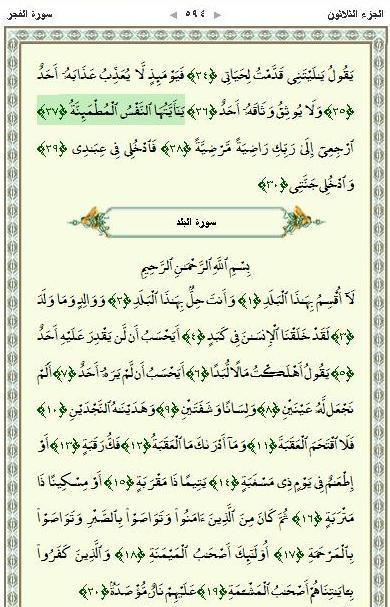 الجزء الثلاثون ◄ ٥٩٤ ► سورة الفجر
يَقُولُ يَٰلَيْتَنِى قَدَّمْتُ لِحَيَاتِى ﴿٢٤﴾ فَيَوْمَئِذٍ لَّا يُعَذِّبُ عَذَابَهُۥٓ أَحَدٌ
﴿٢٥﴾ وَلَا يُوثِقُ وَثَاقَهُۥٓ أَحَدٌ ﴿٢٦﴾ يَٰٓأَيَّتُهَا ٱلنَّفْسُ ٱلْمُطْمَئِنَّةُ ﴿٢٧﴾
ٱرْجِعِىٓ إِلَىٰ رَبِّكِ رَاضِيَةً مَّرْضِيَّةً ﴿٢٨﴾ فَٱدْخُلِى فِى عِبَٰدِى ﴿٢٩﴾
وَٱدْخُلِى جَنَّتِى ﴿٣٠﴾
سورة البلد
بِسْمِ ٱللَّهِ ٱلرَّحْمَٰنِ ٱلرَّحِيمِ
لَآ أُقْسِمُ بِهَٰذَا ٱلْبَلَدِ ﴿١﴾ وَأَنتَ حِلٌّۢ بِهَٰذَا ٱلْبَلَدِ ﴿٢﴾ وَوَالِدٍ وَمَا وَلَدَ
﴿٣﴾ لَقَدْ خَلَقْنَا ٱلْإِنسَٰنَ فِى كَبَدٍ ﴿٤﴾ أَيَحْسَبُ أَن لَّن يَقْدِرَ عَلَيْهِ أَحَدٌ
﴿٥﴾ يَقُولُ أَهْلَكْتُ مَالًا لُّبَدًا ﴿٦﴾ أَيَحْسَبُ أَن لَّمْ يَرَهُۥٓ أَحَدٌ ﴿٧﴾ أَلَمْ
نَجْعَل لَّهُۥ عَيْنَيْنِ ﴿٨﴾ وَلِسَانًا وَشَفَتَيْنِ ﴿٩﴾ وَهَدَيْنَٰهُ ٱلنَّجْدَيْنِ ﴿١٠﴾
فَلَا ٱقْتَحَمَ ٱلْعَقَبَةَ ﴿١١﴾ وَمَآ أَدْرَىٰكَ مَا ٱلْعَقَبَةُ ﴿١٢﴾ فَكُّ رَقَبَةٍ ﴿١٣﴾ أَوْ
إِطْعَٰمٌ فِى يَوْمٍ ذِى مَسْغَبَةٍ ﴿١٤﴾ يَتِيمًا ذَا مَقْرَبَةٍ ﴿١٥﴾ أَوْ مِسْكِينًا ذَا
مَتْرَبَةٍ ﴿١٦﴾ ثُمَّ كَانَ مِنَ ٱلَّذِينَ ءَامَنُوا۟ وَتَوَاصَوْا۟ بِٱلصَّبْرِ وَتَوَاصَوْا۟
بِٱلْمَرْحَمَةِ ﴿١٧﴾ أُو۟لَٰٓئِكَ أَصْحَٰبُ ٱلْمَيْمَنَةِ ﴿١٨﴾ وَٱلَّذِينَ كَفَرُوا۟
بِـَٔايَٰتِنَا هُمْ أَصْحَٰبُ ٱلْمَشْـَٔمَةِ ﴿١٩﴾ عَلَيْهِمْ نَارٌ مُّؤْصَدَةٌۢ ﴿٢٠﴾